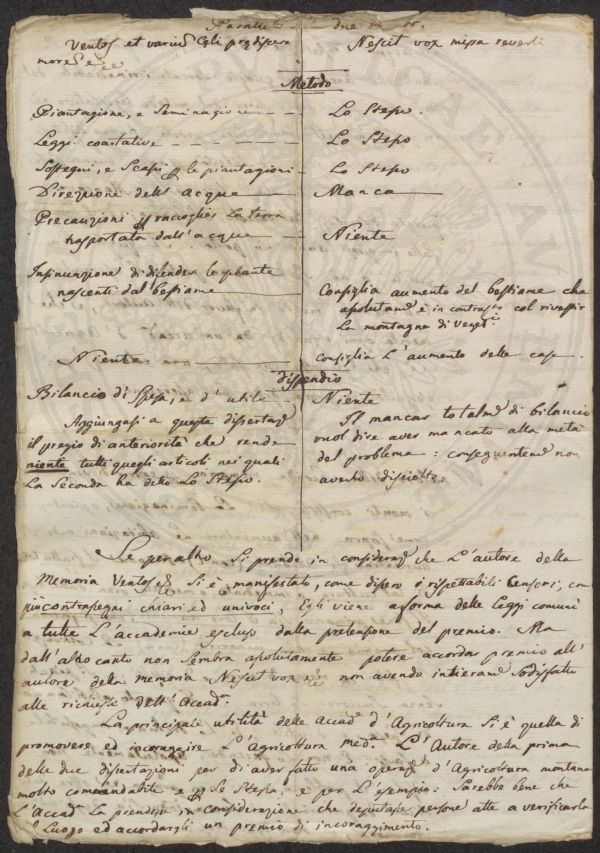 Paralleto due
Ventos et varium Cęli prędiscere
Nescit vox missa reverti
morem &c
Metodo
Piantagione, e Seminagione - - -
Lo Stesso.
Leggi coattative - - - - - - -
Lo Stesso
Sostegni, e Scassi p le piantagioni -
Lo Stesso
Direzione dell' acque
Manca
Precauzioni p raccoglier la terra
trasportata dall' acque
Niente
Insinuazione di difender le piante
nascenti dal bestiame
Consiglia aumento del bestiame che
assolutam e è in contrasto col rivestir
le montagne di Veget.i
Niente
Consiglia l' aumento delle case.
dispendio
Bilancio di Spesa, e d' utile
Niente
Aggiungasi a questa dissertaz.e
Il mancar totalm.e di bilancio
il pregio di anteriorità che rende
vuol dire aver mancato alla metà
niente tutti quegli articoli nei quali
del problema: conseguentem.e non
La Seconda ha detto Lo Stesso.
averlo disciolto.
Se per altro Si prende in consideraz.e che l' autore della
Memoria Ventos &c Si è manifestato, come dissero i rispettabili Censori, con
più contrassegni chiari ed univoci, Egli viene a forma delle Leggi comuni
a tutte l' accademie escluso dalla pretensione del premio. Ma
dall' altro canto non Sembra assolutamente potere accordar premio all'
autore della memoria Nescit vox &c non avendo intieram.e Sodisfatto
alle richieste dell' Accad.a
La principale utilità delle Accad.e d' Agricoltura Si è quella di
promovere ed incoraggire l' Agricoltura med.a L' Autore della prima
delle due dissertazioni par di aver fatto una operaz.e d' Agricoltura montana
molto commendabile e p Se Stessa, e per l' esempio: Sarebbe bene che
l' Accad.a la prendesse in considerazione che deputasse persone atte a verificarla
Luogo ed accordargli un premio di incoraggimento.